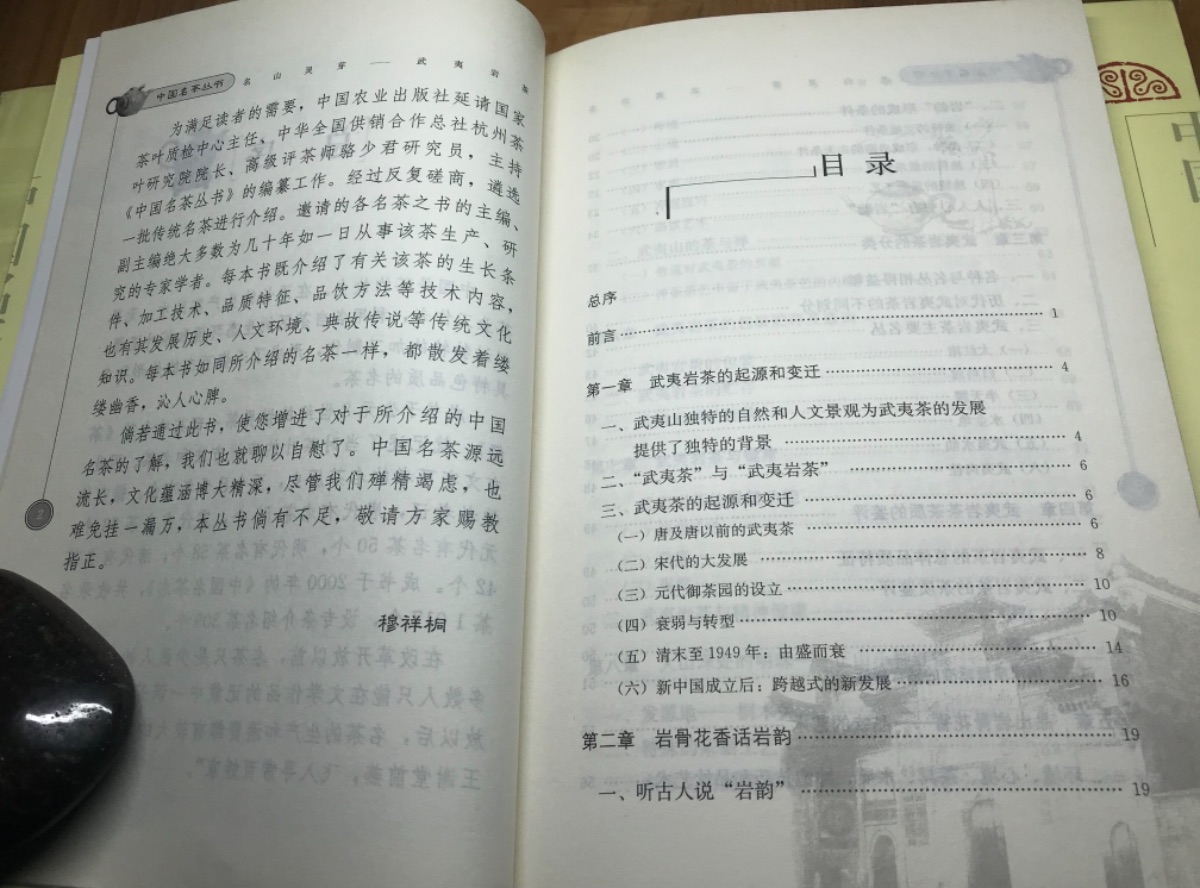 中国名茶丛书
名山灵芽——武夷岩茶
为满足读者的需要，中国农业出版社延请国家
茶叶质检中心主任、中华全国供销合作总社杭州茶
叶研究院院长、高级评茶师骆少君研究员，主持
《中国名茶丛书》的编纂工作。经过反复磋商，遴选
一批传统名茶进行介绍。邀请的各名茶之书的主编、
副主编绝大多数为几十年如一日从事该茶生产、研
究的专家学者。每本书既介绍了有关该茶的生长条
件、加工技术、品质特征、品饮方法等技术内容，
也有其发展历史、人文环境、典故传说等传统文化
知识。每本书如同所介绍的名茶一样，都散发着缕
缕幽香，沁人心脾。
倘若通过此书，使您增进了对于所介绍的中国
名茶的了解，我们也就聊以自慰了。中国名茶源远
流长，文化蕴涵博大精深，尽管我们殚精竭虑，也
难免挂一漏万，本丛书倘有不足，敬请方家赐教
指正。
穆祥桐
2
目录
总序
前言……1
第一章 武夷岩茶的起源和变迁……4
一、武夷山独特的自然和人文景观为武夷茶的发展
提供了独特的背景……4
二、“武夷茶”与“武夷岩茶”……6
三、武夷茶的起源和变迁……6
（一）唐及唐以前的武夷茶……6
（二）宋代的大发展……8
（三）元代御茶园的设立……10
（四）衰弱与转型……10
（五）清末至1949年：由盛而衰……14
（六）新中国成立后：跨越式的新发展……16
第二章 岩骨花香话岩韵……19
一、听古人说“岩韵”……19
中国